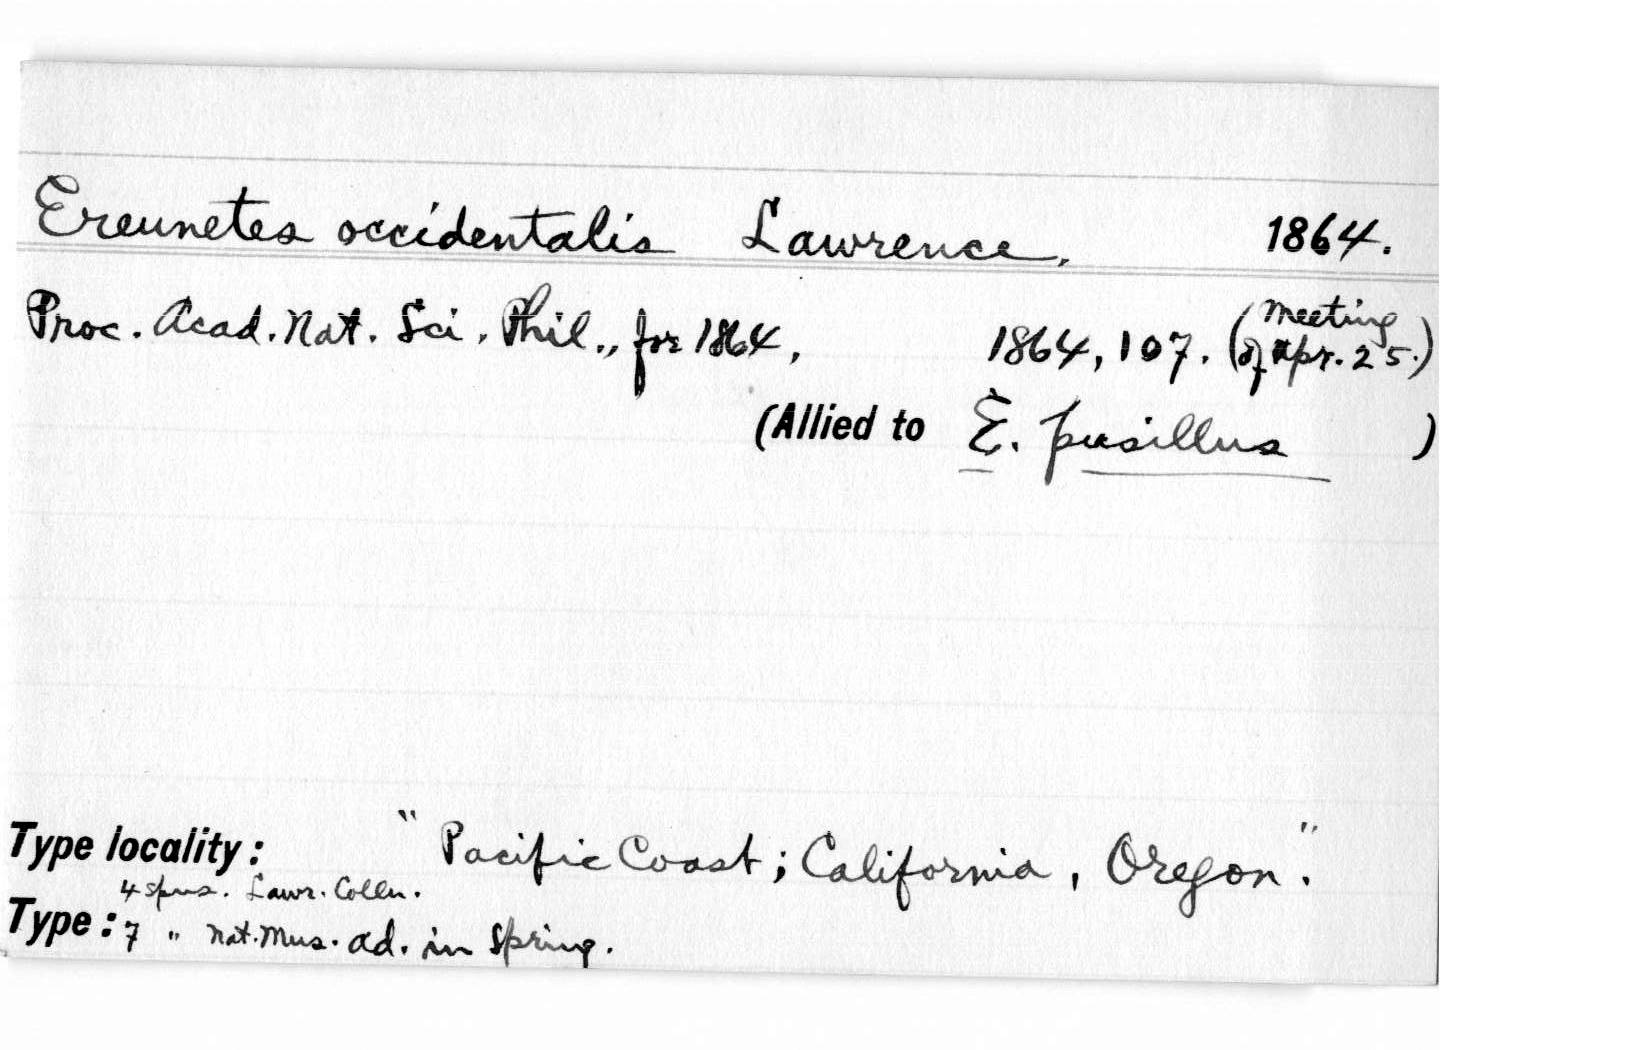 Ereunetes occidentalis Lawrence, 1864.
Proc. Acad. Nat. Sci. Phil., for 1864, 1864, 107. (Meeting of Apr. 25.)
(Allied to E. pusillus )
Type locality: "Pacific Coast; California, Oregon."
4 spms. Lawr. Colln.
Type: 7 " Nat. Mus. ad. in Spring.